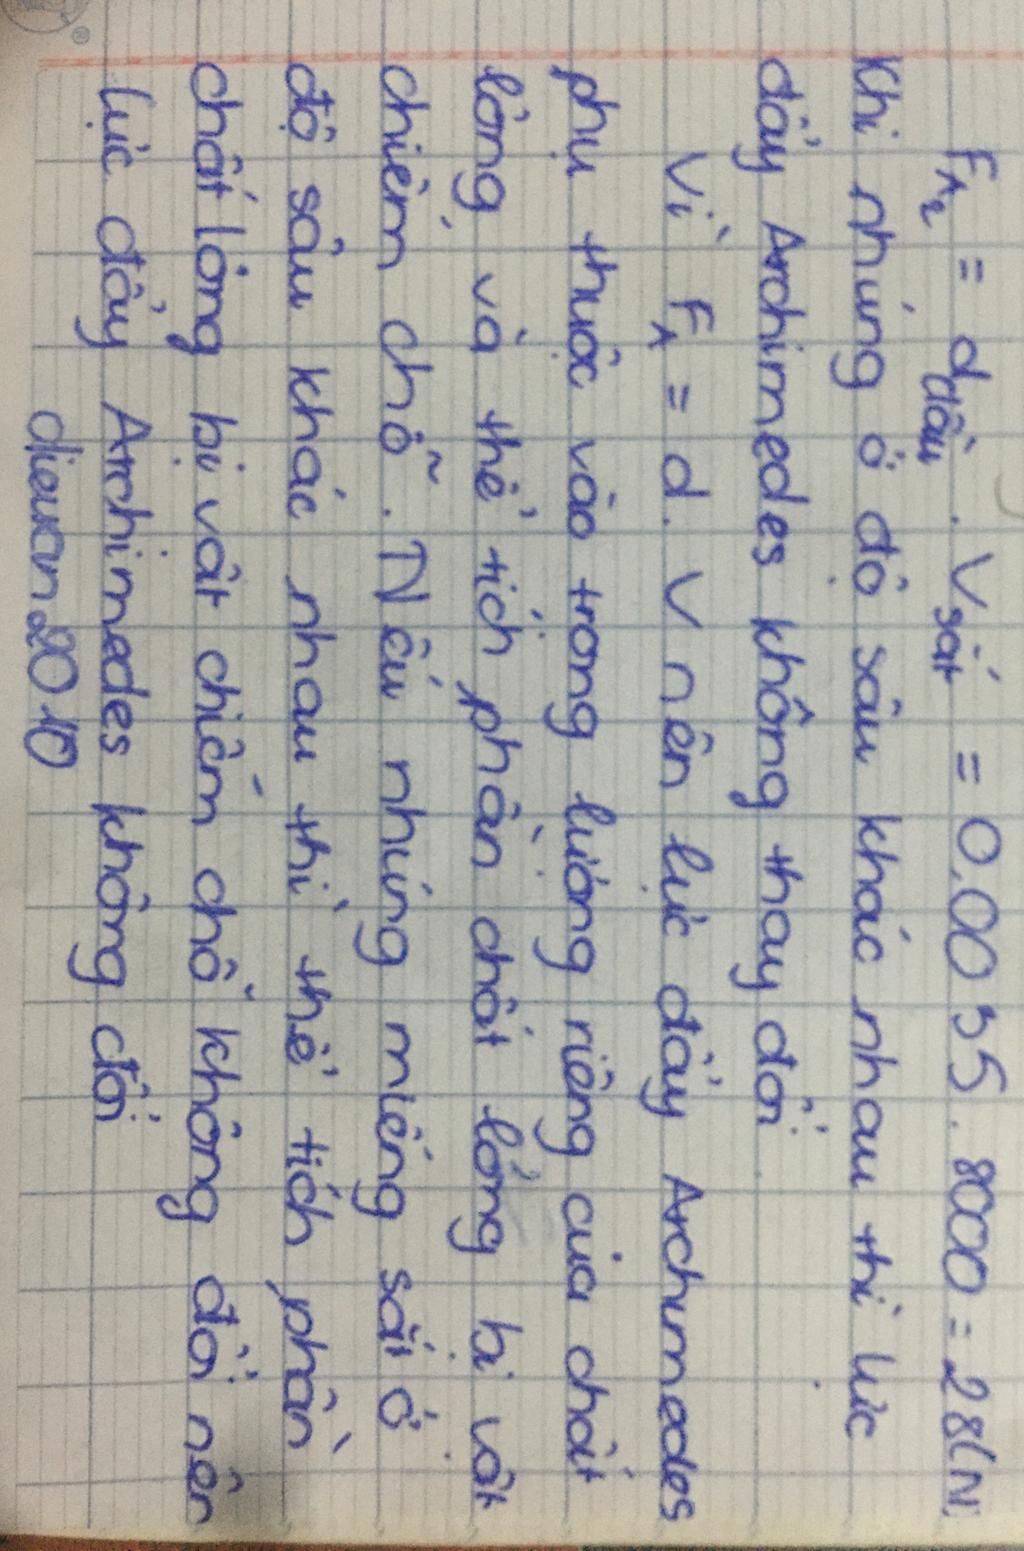 F_A2 = d_dầu . V_sắt = 0,0035 . 8000 = 28(N)
Khi nhúng ở độ sâu khác nhau thì lực
đẩy Archimedes không thay đổi.
Vì F_A = d. V nên lực đẩy Archimedes
phụ thuộc vào trong lượng riêng của chất
lỏng và thể tích phần chất lỏng bị vật
chiếm chỗ. Nếu nhúng miếng sắt ở
độ sâu khác nhau thì thể tích phần
chất lỏng bị vật chiếm chỗ không đổi nên
lực đẩy Archimedes không đổi
dieuan2010